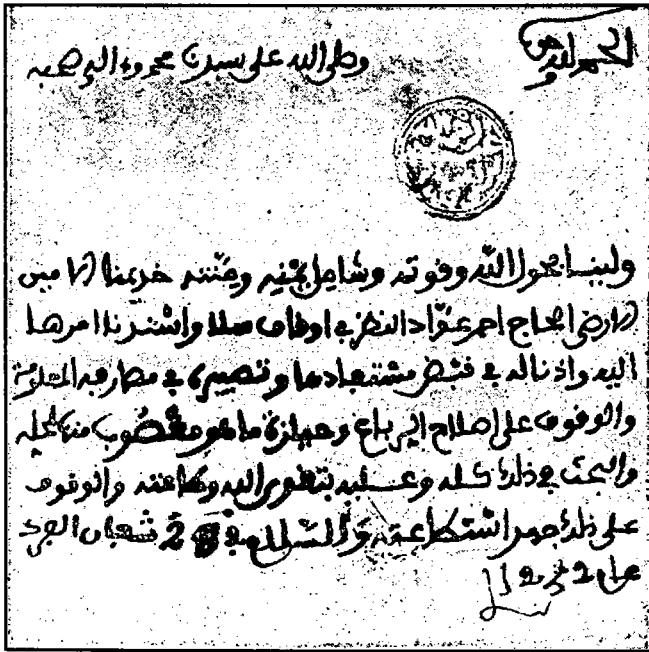 الحمد لله وحده
وصلى الله على سيدنا محمد وآله وصحبه
ولينا بحول الله وقوته وشامل يمنه ومنته خديمنا الامين
الارضى الحاج احمد عواد النظر في اوقاف سلا واسندنا امرها
اليه واذنا له في قبض مستفادها وتصييره في مصارفه المعلومة
والوقوف على اصلاح الرباع وحيازة ما هو مغصوب منها كله
والبحث في ذلك كله وعليه بتقوى الله وطاعته والوقوف
على ذلك جهد استطاعته والسلام في 2 شعبان
عام